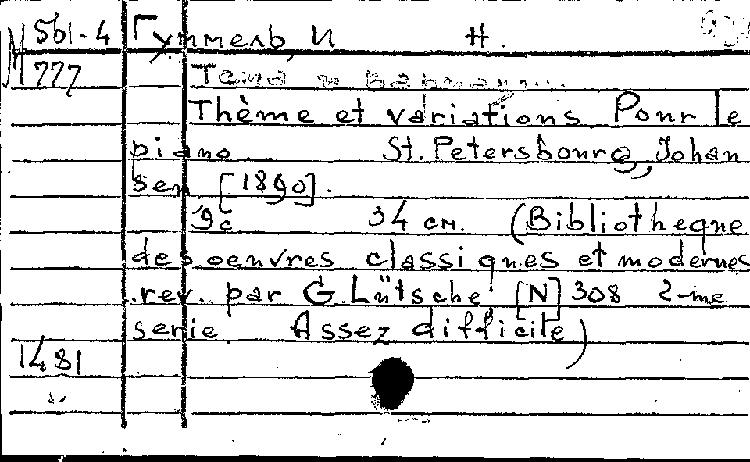 М 561-4 Гуммель, И. Н.
777 Тема и вариации...
Thème et variations Pour le
piano St. Petersbourg, Johan
sen [1890].
9с 34 см. (Bibliotheque
des oenvres classiques et modernes
rev. par G. Lütsche [N] 308 2-me
serie. Assez difficile)
1481